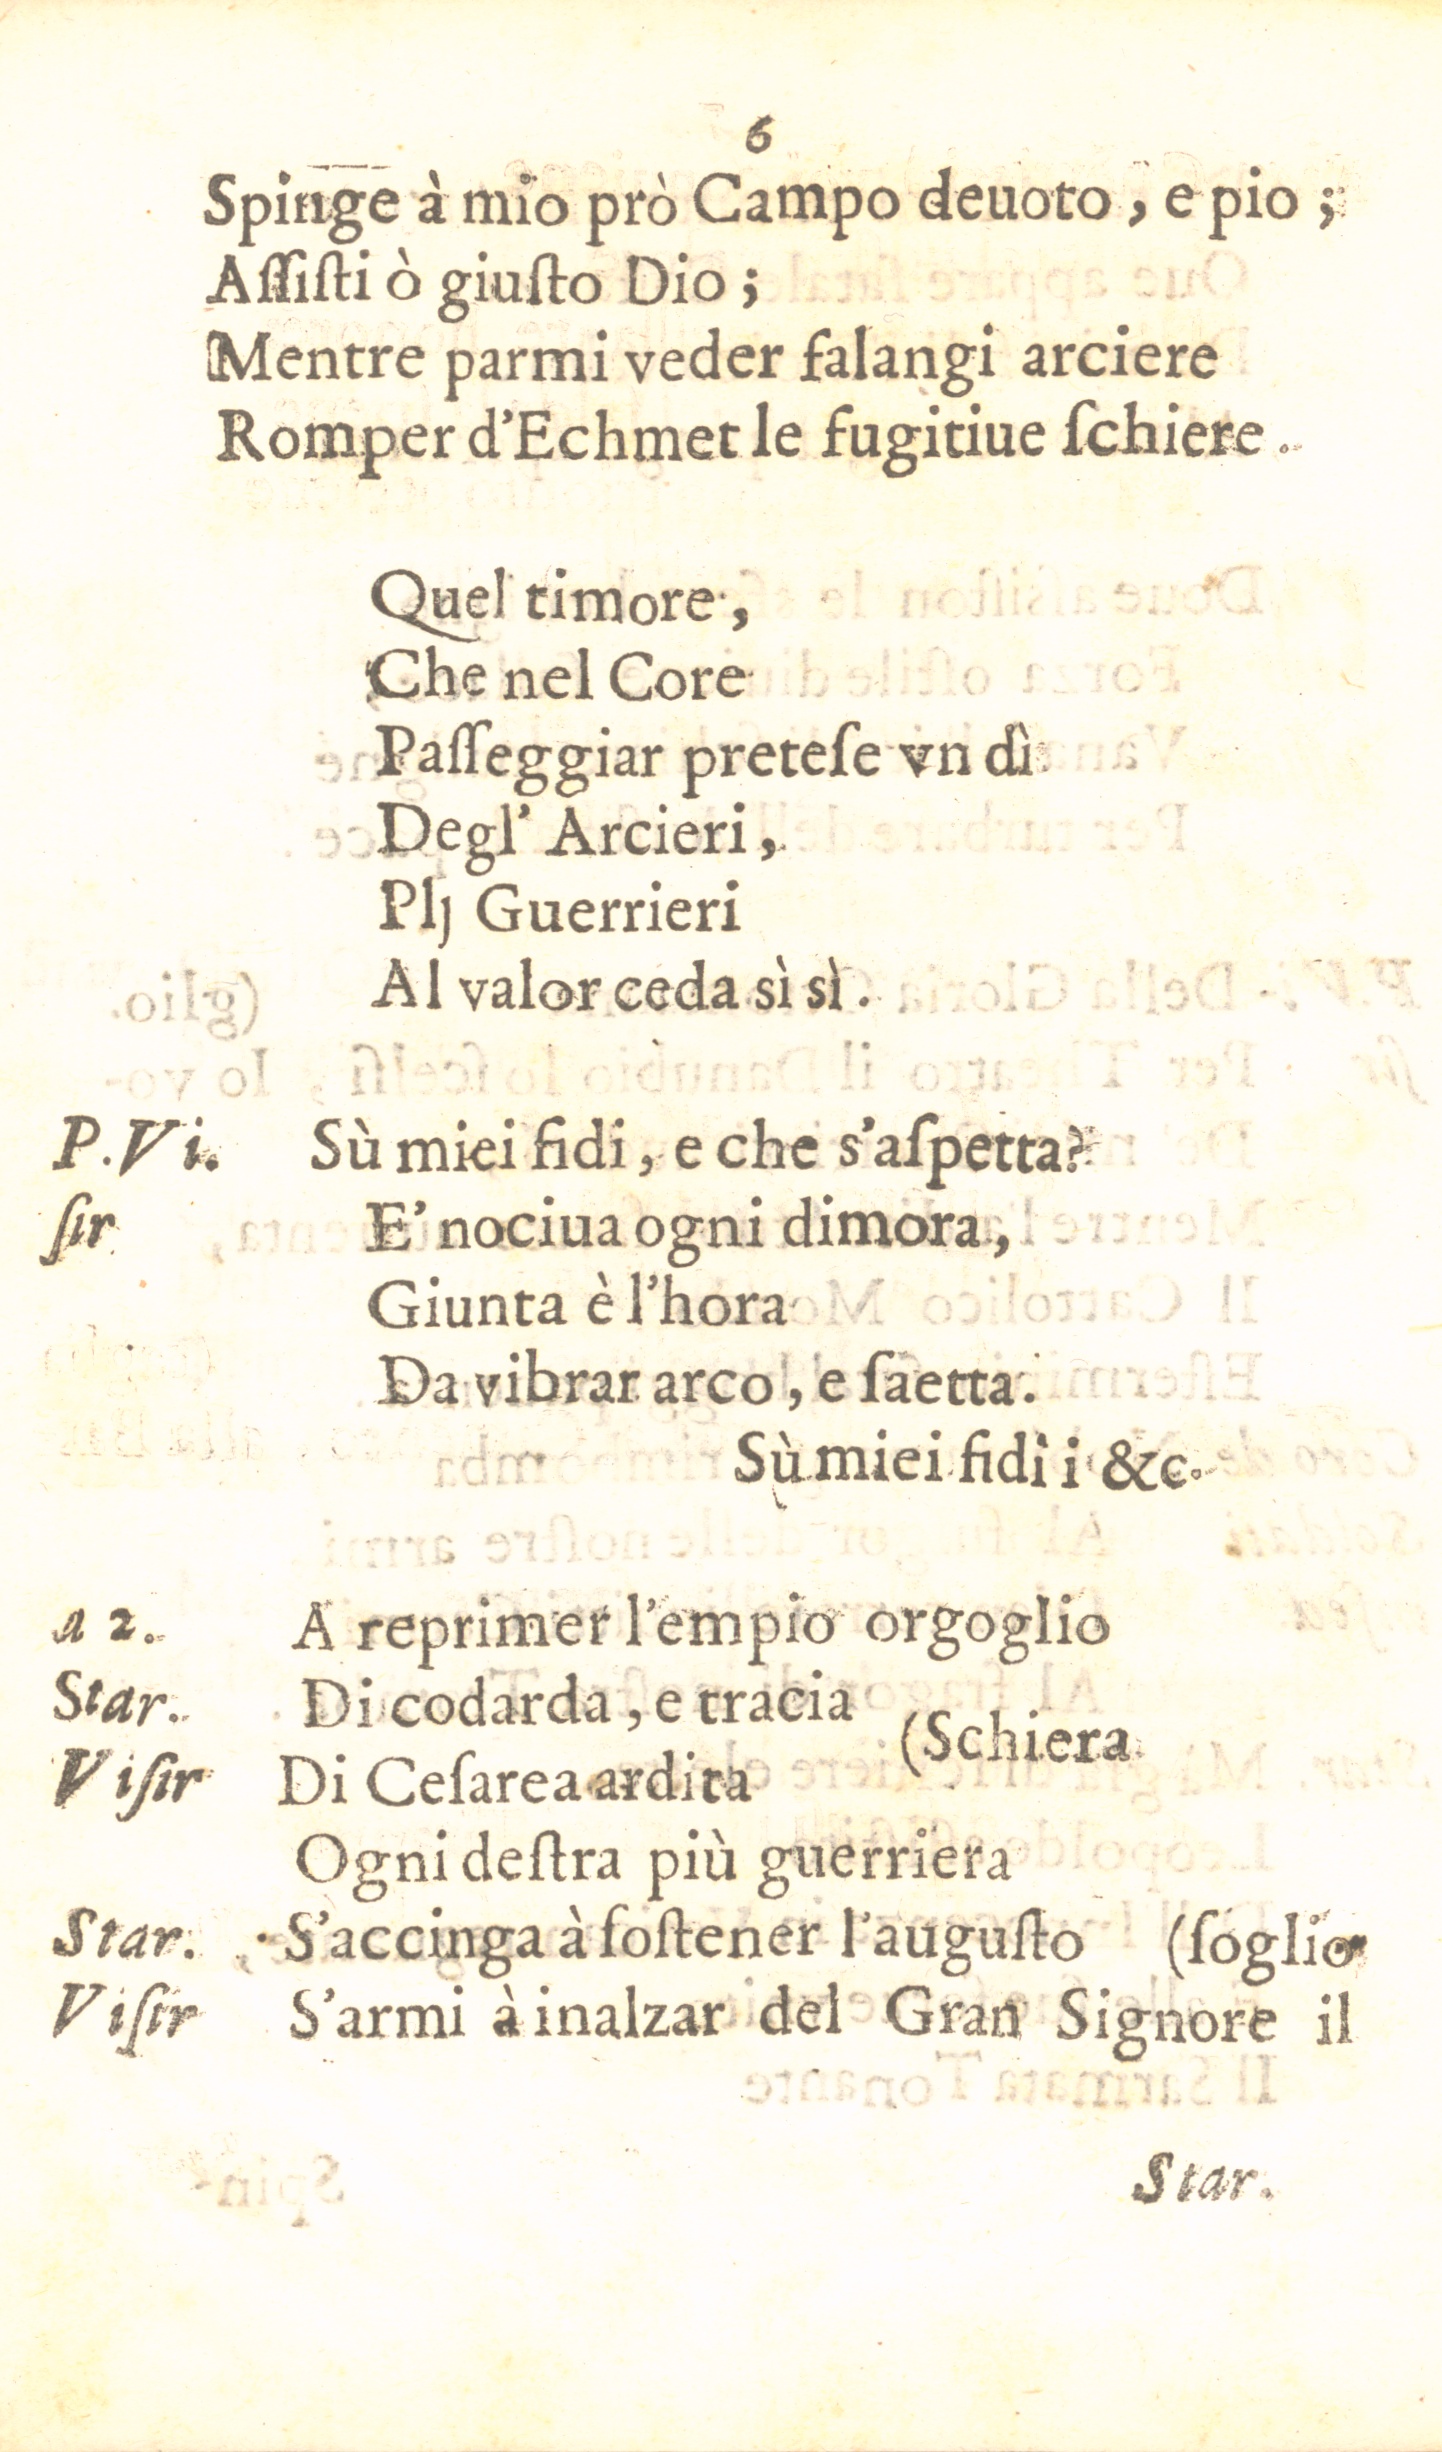 6
Spinge à mio prò Campo deuoto, e pio;
Aſſiſti ò giuſto Dio;
Mentre parmi veder falangi arciere
Romper d'Echmet le fugitiue ſchiere.
Quel timore,
Che nel Core
Paſſeggiar preteſe vn dì
Degl' Arcieri,
Plj Guerrieri
Al valor ceda sì sì.
P.Vi. Sù miei fidi, e che s'aſpetta?
ſir E' nociua ogni dimora,
Giunta è l'hora
Da vibrar arco, e ſaetta.
Sù miei fidì i &c.
a 2. A reprimer l'empio orgoglio
Star. Di codarda, e tracia
(Schiera
Viſir Di Ceſarea ardita
Ogni deſtra più guerriera
Star. S'accinga à ſoſtener l'auguſto (ſoglio
Viſir S'armi à inalzar del Gran Signore il
Star.